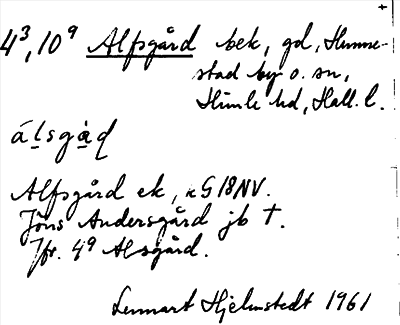 4³, 10⁹ Alfsgård bek, gd, Himme-
stad by o. sn,
Himle hd, Hall. l.
álsgàd
Alfsgård ek, RG 18NV.
Jöns Andersgård jb †.
Jfr. 4⁹ Alsgård.
Lennart Hjelmstedt 1961